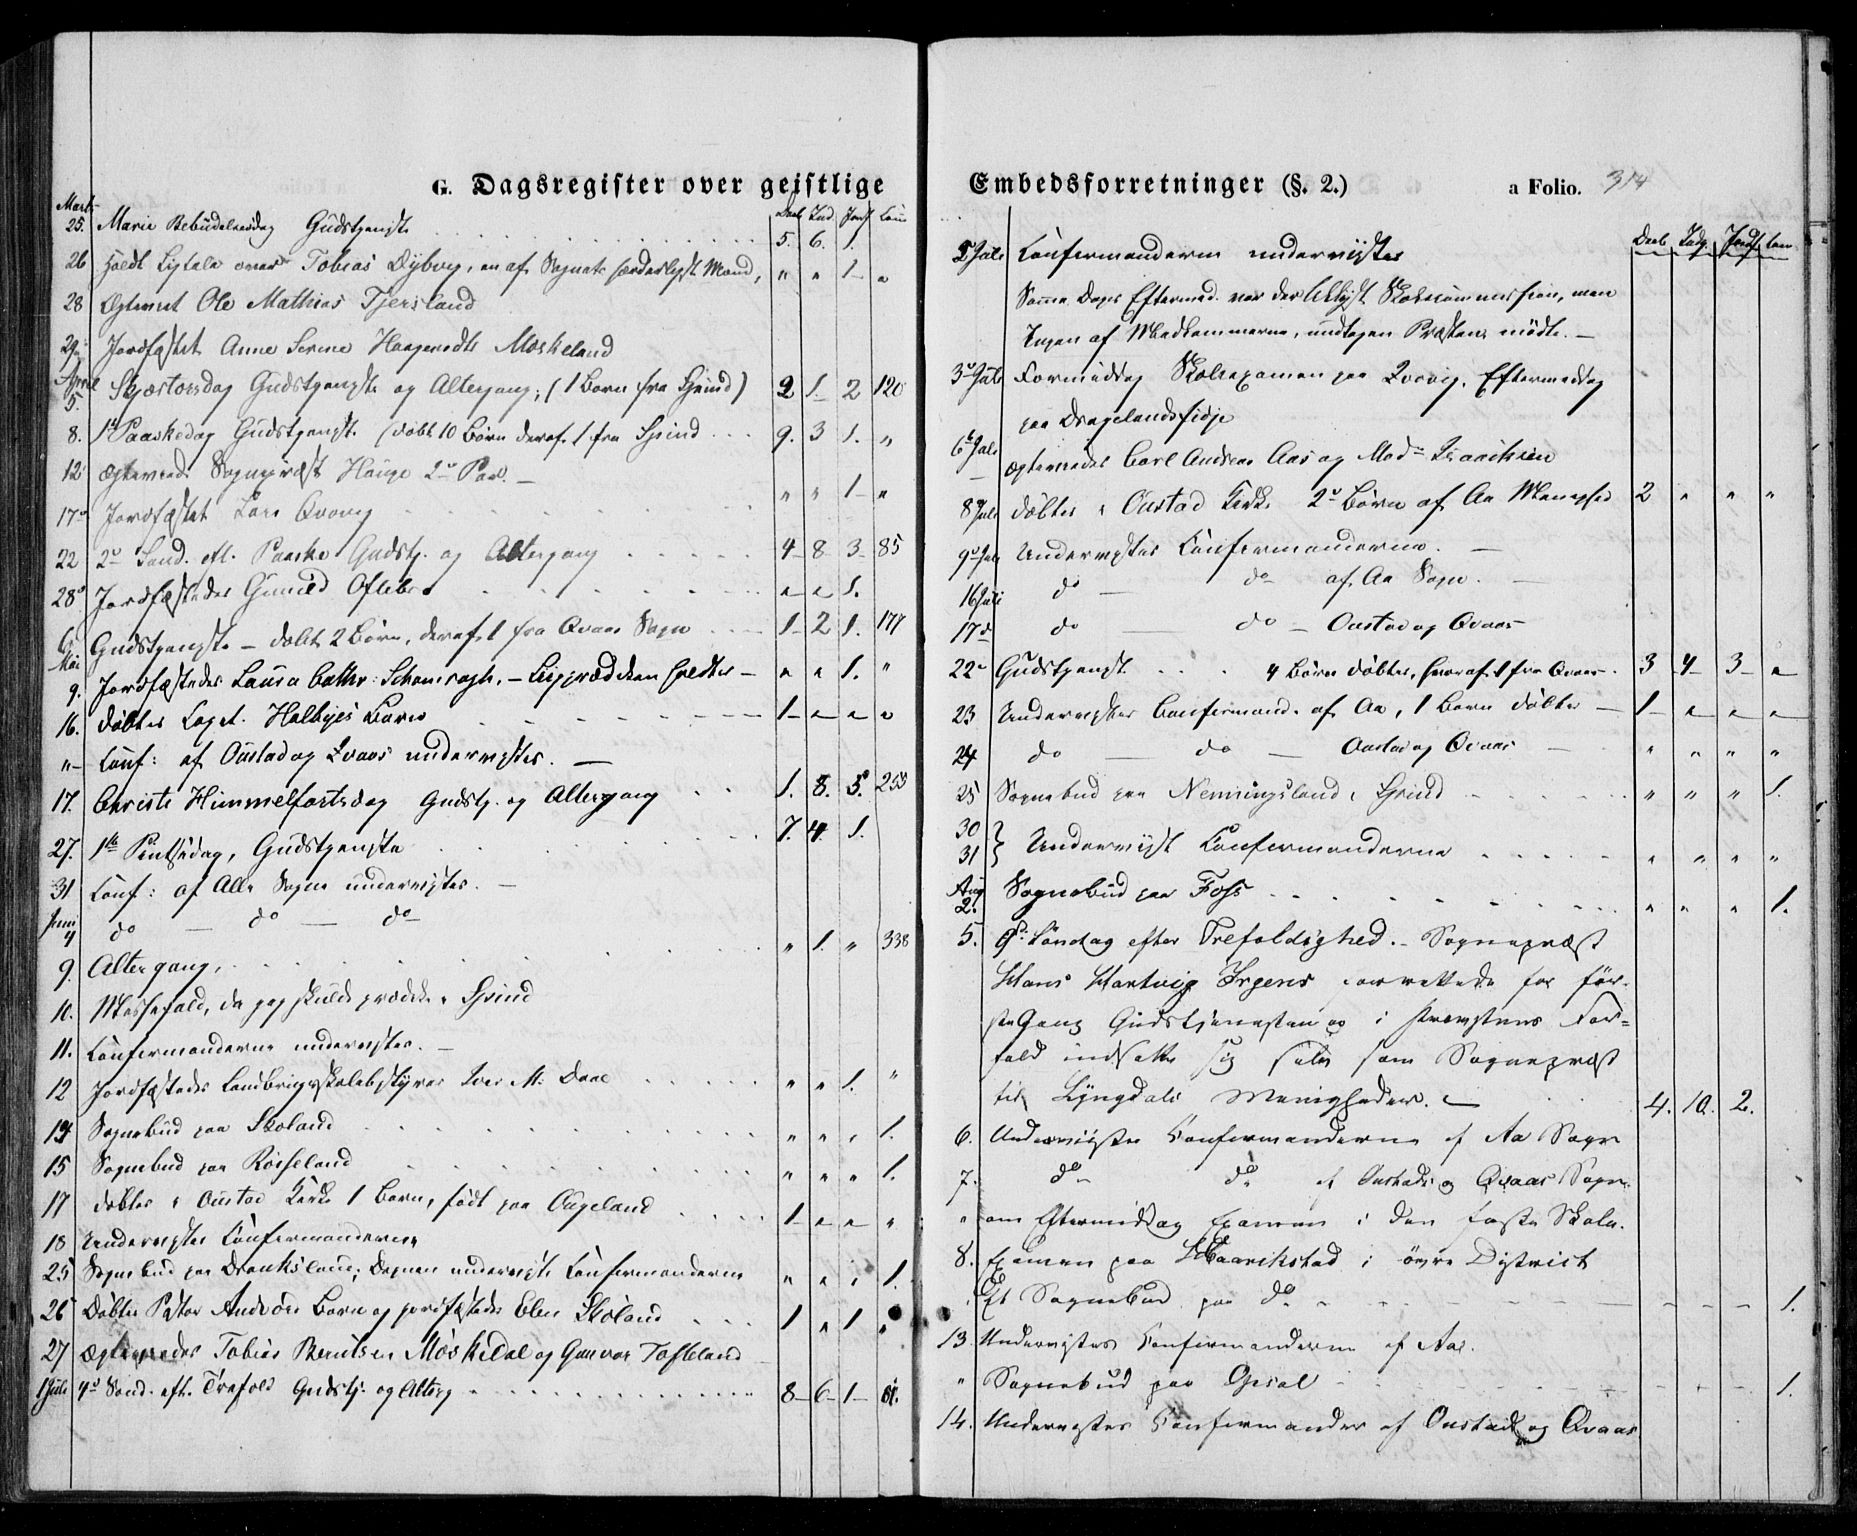 G. Dagsregister over geistlige
Marts Daab Ind. Jordf. Com
25. Marie Bebudelsesdag Gudstjeneste 5. 6. 1.
26 Holdt Ligtale over Tobias Dybvig, en af Sognets hæderligste Mænd, " " 1 "
28 Ægteviet Ole Mathias Tjersland
29 Jordfæstet Anne Serine Haagensdtr Møskeland
April
5. Skjærtorsdag Gudstjeneste og Altergang; (1 Barn fra Spind) 2 1. 2 120
8. 1ste Paaskedag Gudstjeneste (døbt 10 Børn deraf 1 fra Spind 9. 3 1. "
12 Ægteviede Sognepræst Hauge 2de Par. —
17de Jordfæstet Lars Qvavig " " 1 "
22 2den Sønd. eft. Paaske Gudstj. og Altergang 4 8 3 85
28de Jordfæstedes Gunild Oftebro " " 1.
6 Gudstjeneste – døbt 2 Børn, deraf 1 fra Qvaas Sogn 1 2 1. 177
Mai
9. Jordfæstedes Laura Cathr: – Ligprædiken holdtes – " " 1. "
16. Døbtes Barn 1 " " "
"– Conf: af Oustad og Qvaas undervistes. —
17. Christi Himmelfartsdag Gudstj. og Altergang 1. 8. 5. 253
27. 1ste Pintsedag, Gudstjeneste 7. 4. 1.
31 Conf: af Alle Sogne undervistes. —
Juni
4 do — do — do
9. Altergang, " 1. " 338
10. Messefald, da jeg skulde prædike i Spind
11. Confirmanderne undervistes. —
12 Jordfæstedes Landbrugsskolebestyrer Iver M: Daae " " 1. "
14 Sognebud paa Skoland " " " 1.
15 Sognebud paa Røisland " " " 1.
17 Døbtes i Oustad Kirke 1 Barn, født paa Augeland 1 " " "
18 Undervistes Confirmanderne
25 Sognebud paa Drauksland; Dagen undervist Confirmanderne " " " 1.
26 Døbtes Barn og jordfæstedes Elen Skoland 1 " 1 "
27 Ægteviedes Tobias Berntsen Møskedal og Gunvor Tofteland
1 Juli 4de Sønd. eft. Trefold Gudstj. og Alterg 8 6 1 81.
Embedsforretninger (§. 2.) a Folio. 314
Daab Indg. Jordf. Com
2 Juli Confirmanderne undervistes
Samme Dags Eftermid. var berammet Skolecommission, men
Ingen af Medlemmerne, undtagen Præsten mødte. —
3 Juli Formiddag Skoleexamen paa Qvavig. Eftermiddag
paa Dragelandsfidje
6 Juli Ægteviedes Carl Andreas Aas og Mad. Isaachsen
8 Juli Døbtes i Oustad Kirke 2de Børn af Aa Menighed 2 " " "
9 Juli Undervistes Confirmanderne. —
16 Juli do — do af Aa Sogn. —
17 do — do – Oustad og Qvaas
22 Gudstjenest. 4 Børn døbtes, hvoraf 1 fra Qvaas 3 4 3 "
23 Undervistes Confirmand. af Aa, 1 Barn døbtes 1 " " "
24 do — do — Oustad og Qvaas — " " " "
25 Sognebud paa Nenningsland i Spind " " " 1.
30
31 } Undervist Confirmanderne " " " "
Aug
2. Sognebud paa Foss " " " 1.
5. 9de Søndag efter Trefoldighed. – Sognepræst
Hans Hartvig Irgens forrettede for før-
ste Gang Gudstjenesten og i Provstens For=
fald indsatte sig selv som Sognepræst
til Lyngdals Menigheder. — 4. 10. 2.
6. Undervistes Confirmanderne af Aa Sogn
7. do do af Oustads og Qvaas Sogn.
" om Eftermiddag Examen i den faste Skole.
8. Examen paa Haarikstad i øvre District
Et Sognebud paa do 1.
13. Undervistes Confirmanderne af Aa.
" Sognebud paa 1.
14. Undervistes Confirmander af Oustad og Qvaas